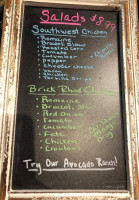 Salads $8.99
Southwest Chicken
• Romaine
• Broccoli Slaw
• Roasted Corn
• Tomato
• Cucumber
• pepper
• cheddar cheese
• chicken
• Tortilla Strips
Brick Road Chicken
• Romaine
• Broccoli Slaw
• Red Onion
• Tomato
• cucumber
• Feta
• Chicken
• Croutons
Try Our Avocado Ranch!